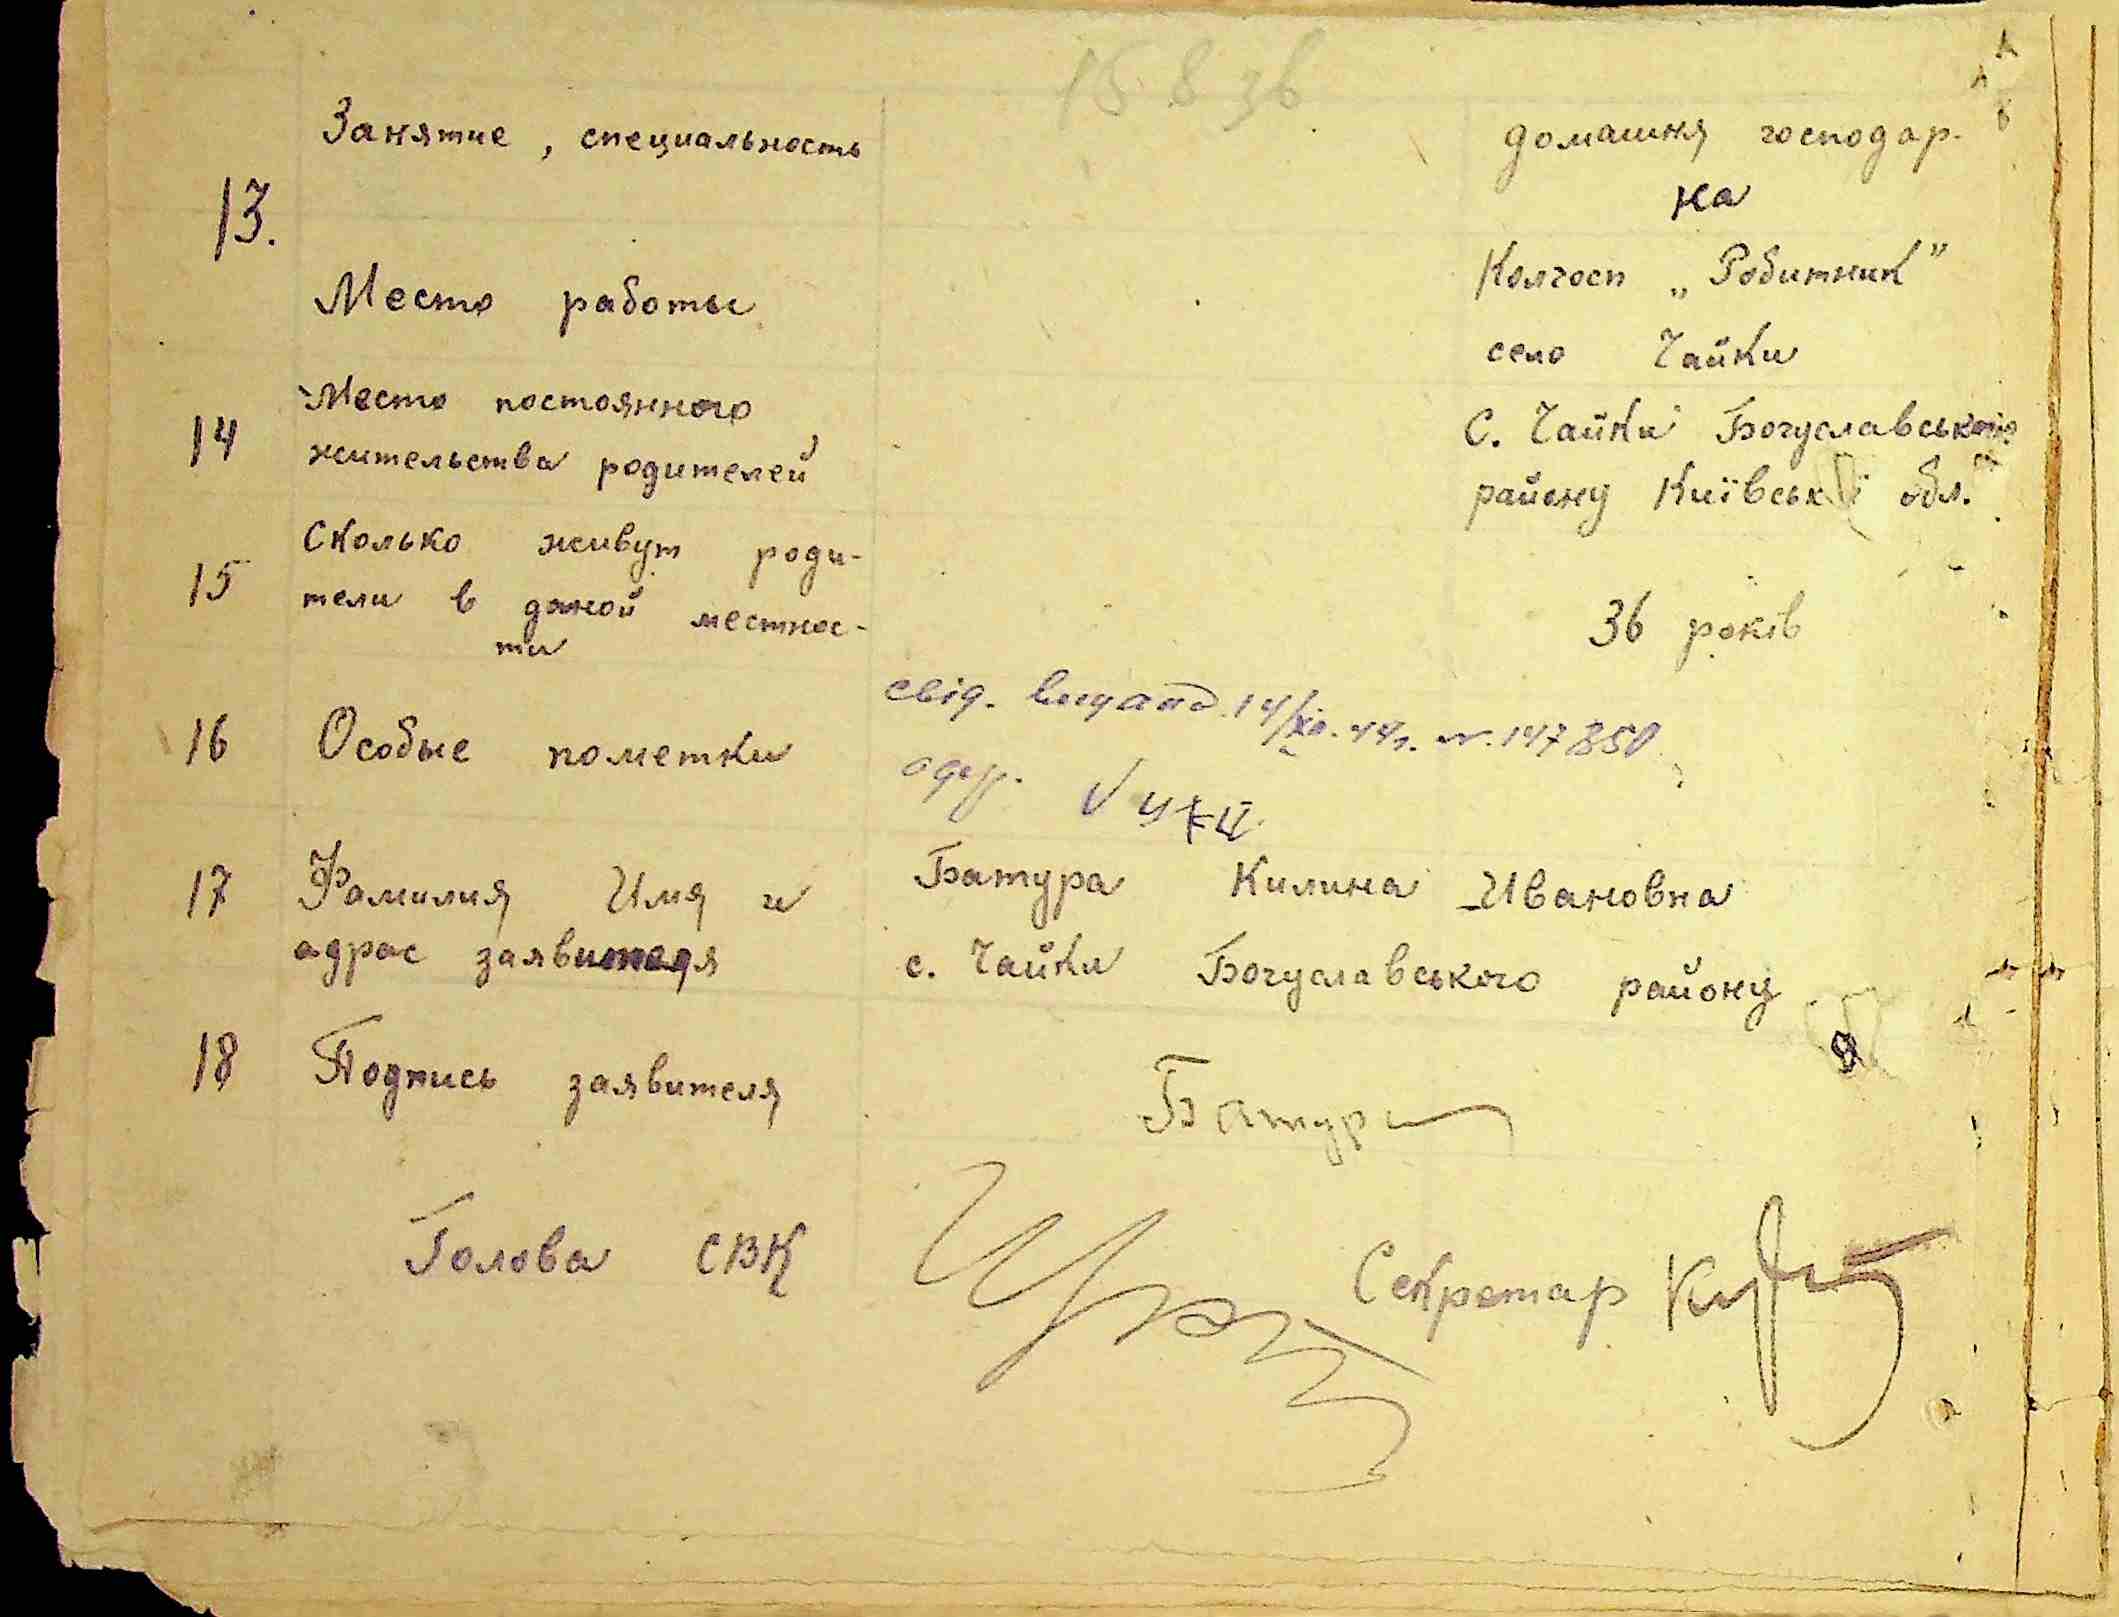 15 8 36
Занятие, специальность
домашня господар-
ка
13.
Место работы
Колгосп „Робитник"
село Чайки
14
Место постоянного
жительства родителей
С. Чайки Богуславського
району Київськ ї обл.
15
Сколько живут роди-
тели в даной местнос-
ти
36 років
16
Особые пометки
свід. 14/ 44г. №. 147850
одер.
17
Фамилия Имя и
адрес заявителя
Батура Килина Ивановна
с. Чайки Богуславського району
18
Подпись заявителя
Батура
Голова СВК
Секретар